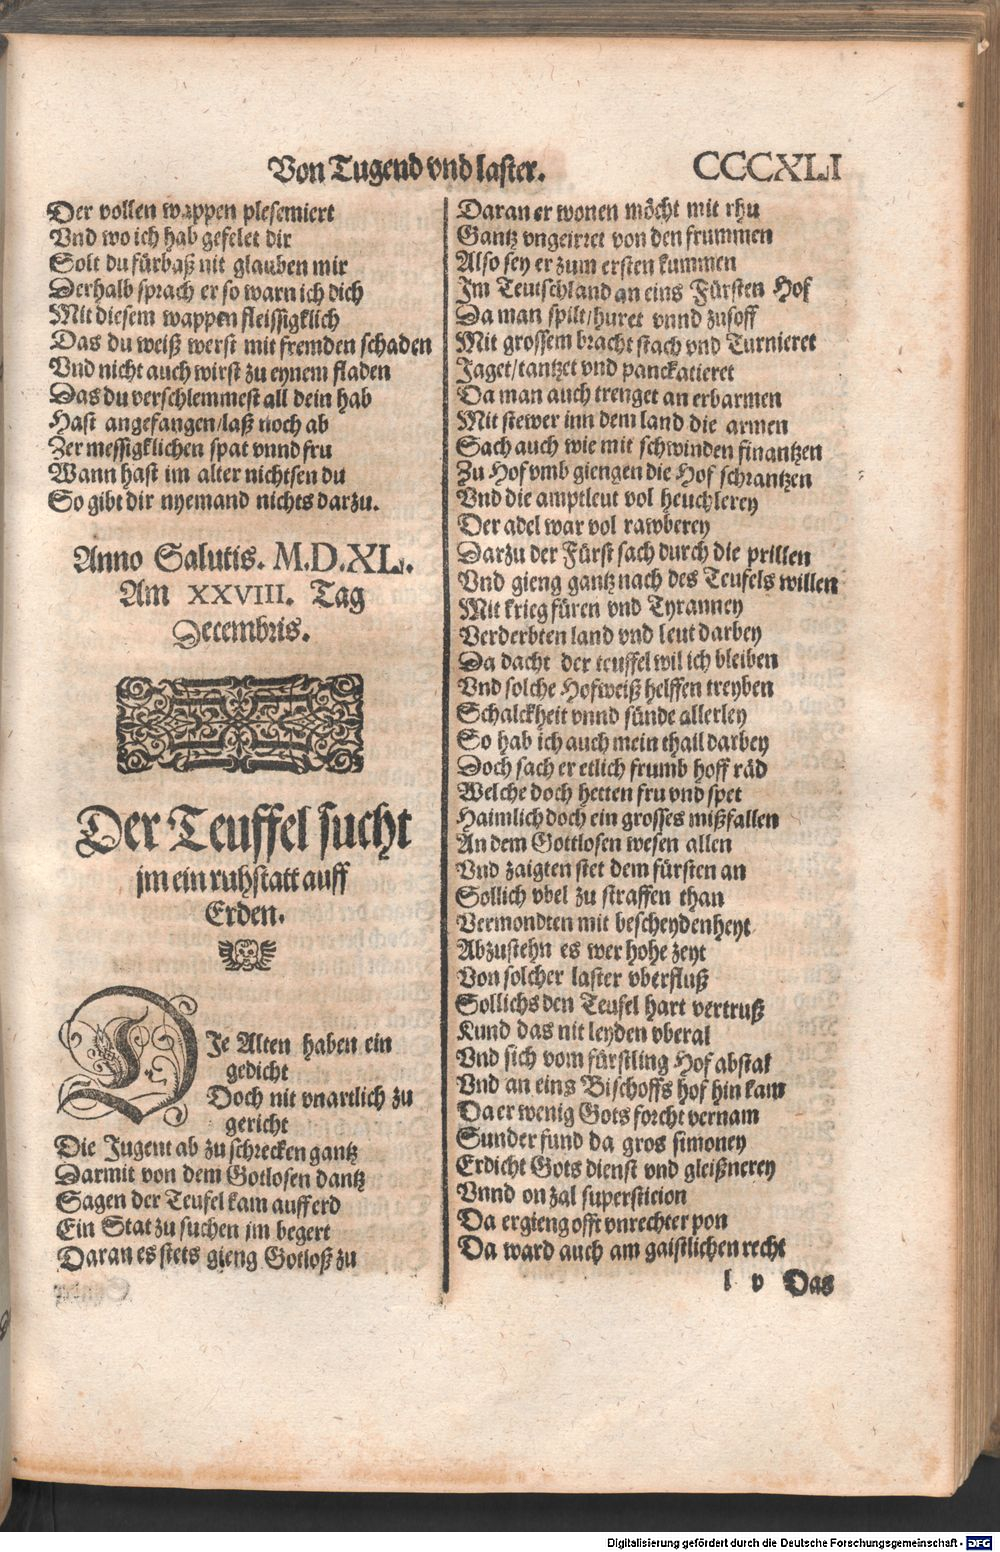 Von Tugend vnd laster. CCCXLI
Der vollen wappen plesemiert
Vnd wo ich hab gefelet dir
Solt du fürbaß nit glauben mir
Derhalb sprach er so warn ich dich
Mit diesem wappen fleissigklich
Das du weiß werst mit fremden schaden
Vnd nicht auch wirst zu eynem fladen
Das du verschlemmest all dein hab
Hast angefangen/laß noch ab
Zer messigklichen spat vnnd fru
Wann hast im alter nichtsen du
So gibt dir nyemand nichts darzu.
Anno Salutis. M.D.XL.
Am XXVIII. Tag
Decembris.
Der Teuffel sucht
jm ein ruhstatt auff
Erden.
DIe Alten haben ein
gedicht
Doch nit vnartlich zu
gericht
Die Jugent ab zu schrecken gantz
Darmit von dem Gotlosen dantz
Sagen der Teufel kam auff erd
Ein Stat zu suchen jm begert
Daran es stets gieng Gotloß zu
Daran er wonen möcht mit rhu
Gantz vngeirret von den frummen
Also sey er zum ersten kummen
Im Teutschland an eins Fürsten Hof
Da man spilt/huret vnnd zusoff
Mit grossem bracht stach vnd Turnieret
Jaget/tantzet vnd panckatieret
Da man auch trenget an erbarmen
Mit stewer inn dem land die armen
Sach auch wie mit schwinden finantzen
Zu Hof vmb giengen die Hof schrantzen
Vnd die amptleut vol heuchlerey
Der adel war vol rawberey
Darzu der Fürst sach durch die prillen
Vnd gieng gantz nach des Teufels willen
Mit krieg füren vnd Tyranney
Verderbten land vnd leut darbey
Da dacht der teuffel wil ich bleiben
Vnd solche Hofweiß helffen treyben
Schalckheit vnnd sünde allerley
So hab ich auch mein thail darbey
Doch sach er etlich frumb hoff räd
Welche doch hetten fru vnd spet
Haimlich doch ein grosses mißfallen
An dem Gottlosen wesen allen
Vnd zaigten stet dem fürsten an
Sollich vbel zu straffen than
Vermondten mit bescheydenheyt
Abzustehn es wer hohe zeyt
Von solcher laster vberfluß
Sollichs den Teufel hart vertruß
Kund das nit leyden vberal
Vnd sich vom fürstling Hof abstal
Vnd an eins Bischoffs hof hin kam
Da er wenig Gots forcht vernam
Sunder fund da gros simoney
Erdicht Gots dienst vnd gleißnerey
Vnnd on zal supersticion
Da ergieng offt vnrechter pon
Da ward auch am gaistlichen recht
l v Das
Digitalisierung gefördert durch die Deutsche Forschungsgemeinschaft - DFG